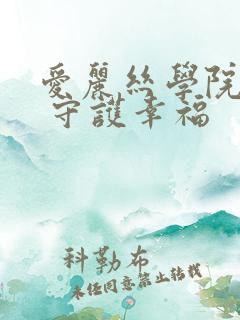 愛麗絲學院
守護幸福
科勒布
未經同意禁止轉載